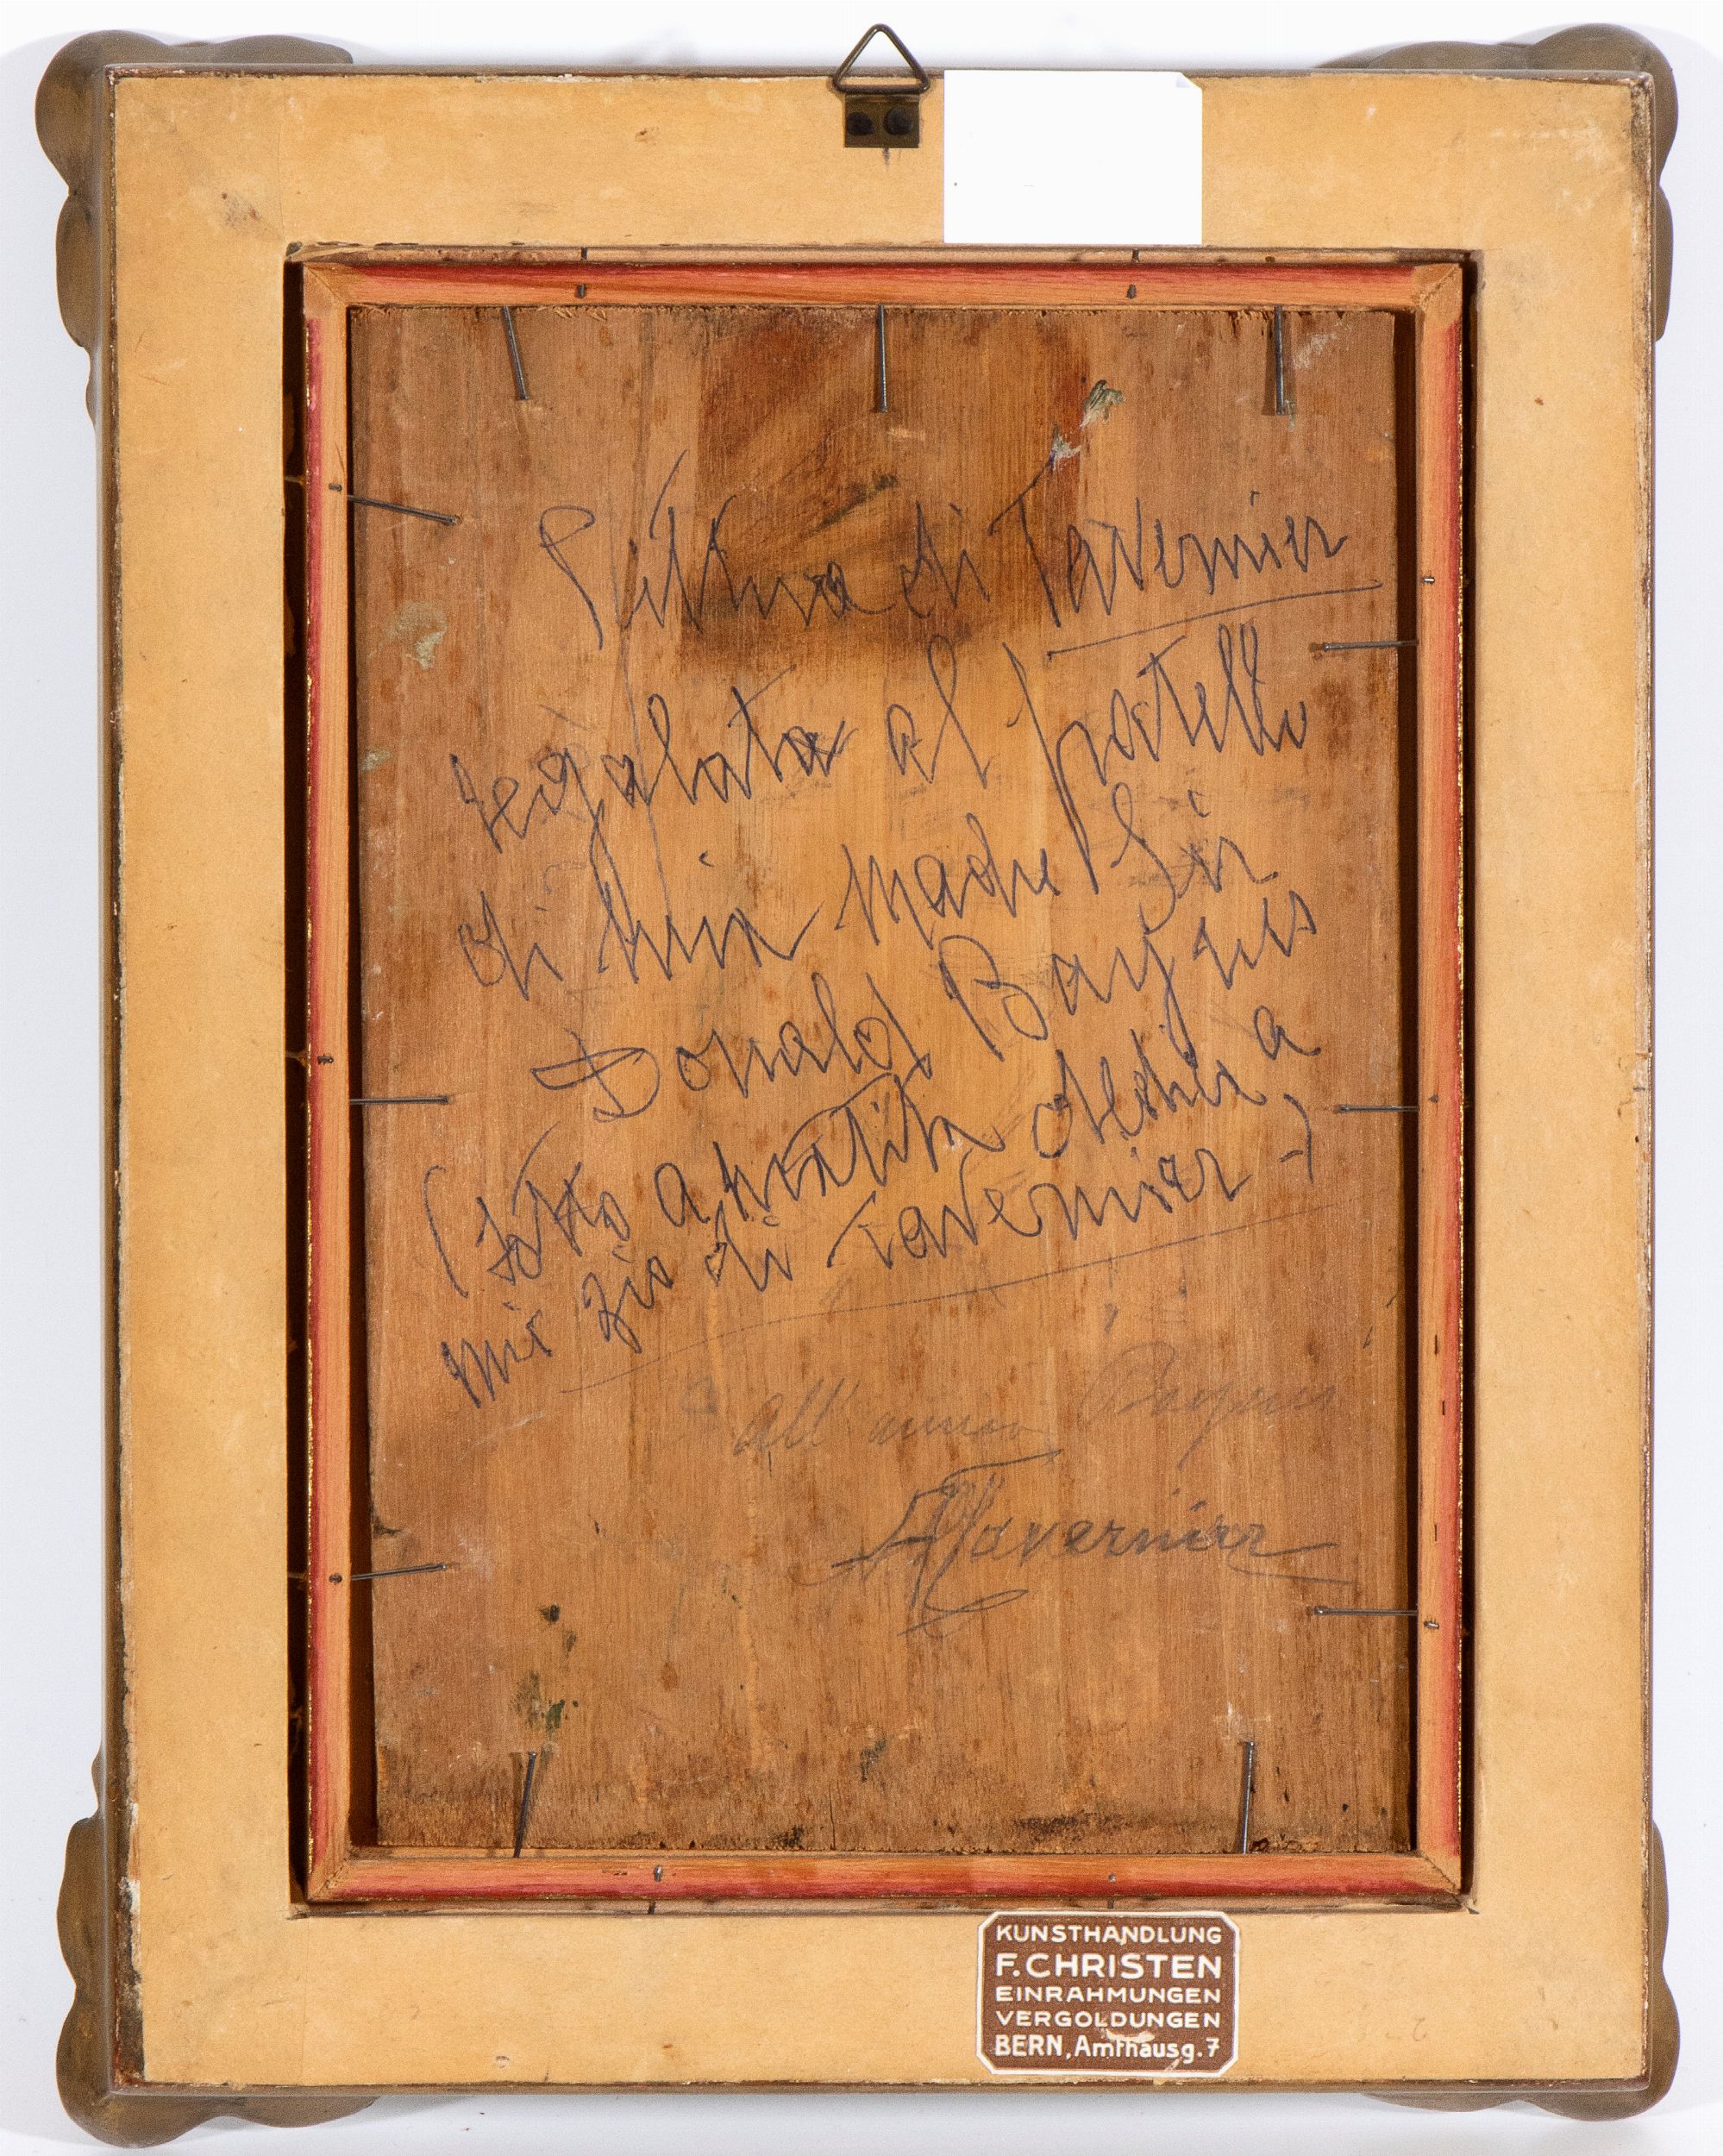 Pittura di Tavernier
regalata al fratello
di mia madre Sir
Donald Baynes
(sotto a matita dedica a
mio zio di Tavernier)
All'amico Baynes
A Tavernier
KUNSTHANDLUNG
F. CHRISTEN
EINRAHMUNGEN
VERGOLDUNGEN
BERN, Amthausg. 7